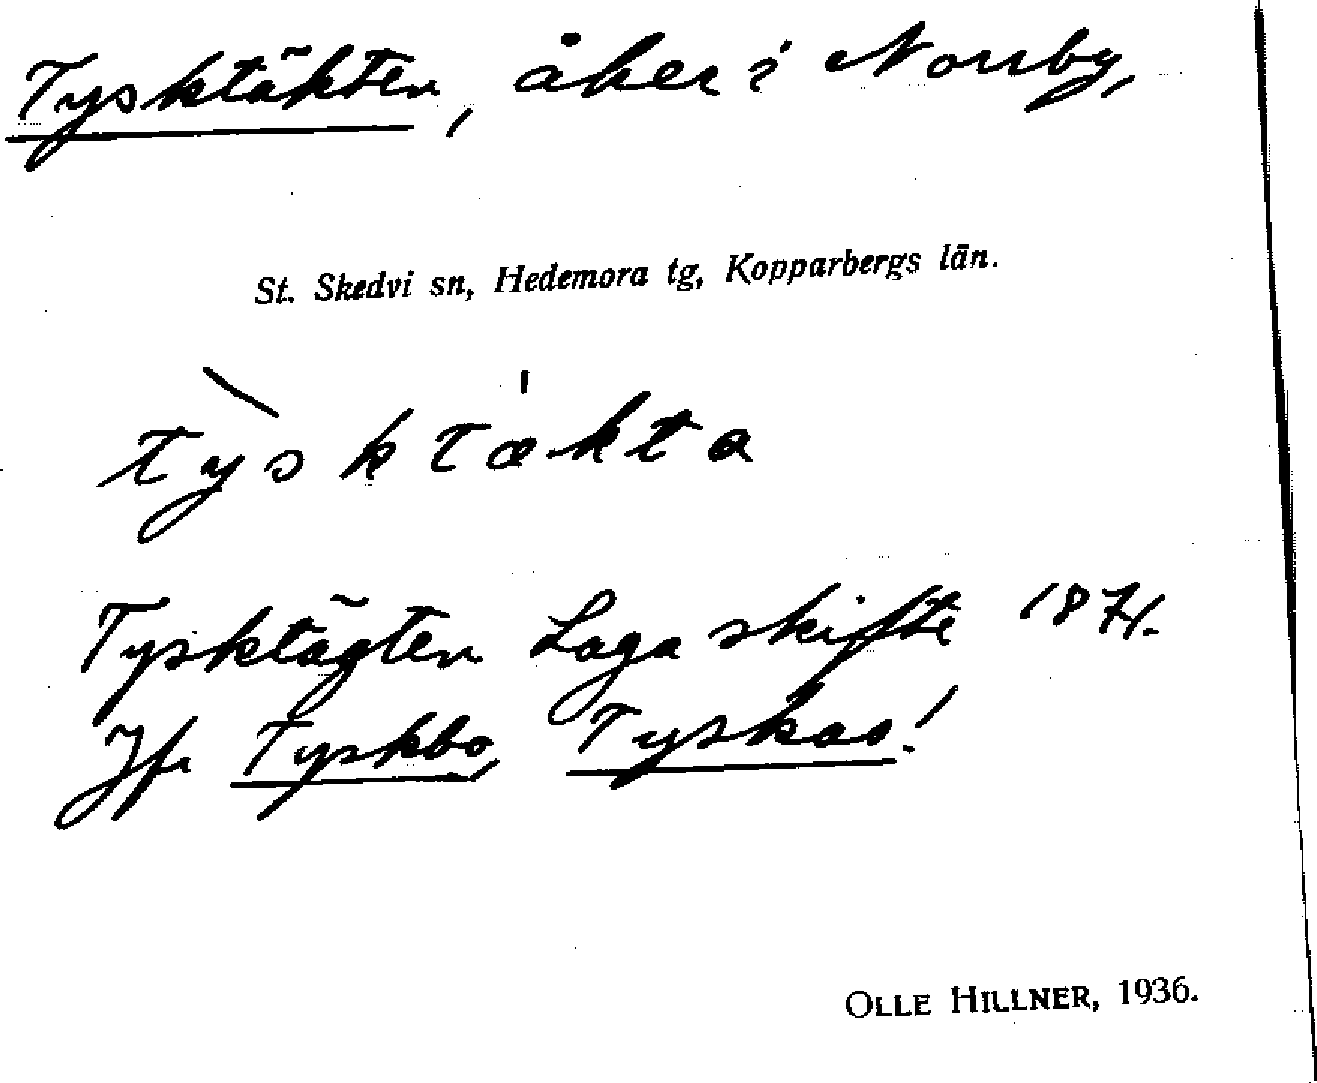 Tysktäkten, åker i Norrby,
St. Skedvi sn, Hedemora tg, Kopparbergs län.
tỳsktækta
Tysktägten Laga skifte 1871.
Jfr Tyskbo, Tyskas!
OLLE HILLNER, 1936.